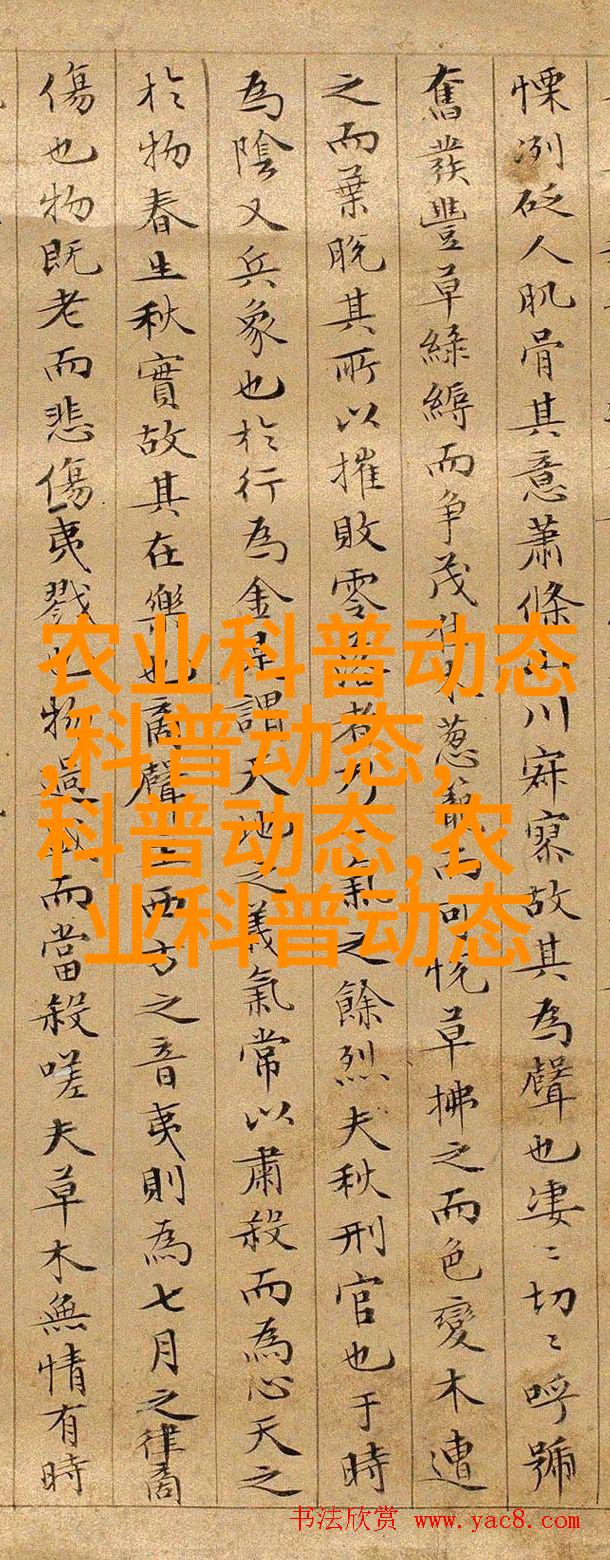 慄冽砭人肌骨其意蕭條山川寂寥故其為聲也凄〻切〻呼號
奮發豐草綠縟而争茂佳木葱蘢而可悦草拂之而色變木遭
之而葉脱其所以摧敗零落者乃一氣之餘烈夫秋刑官也于時
為陰又兵象也於行為金是謂天地之義氣常以肅殺而為心天之
於物春生秋實故其在樂也商聲主西方之音夷則為七月之律商
傷也物既老而悲傷夷戮也物過盛而當殺嗟夫草木無情有時
农业科普动态
,科普动态,
科普动态,农
业科普动态
书法欣赏 www.yac8.com